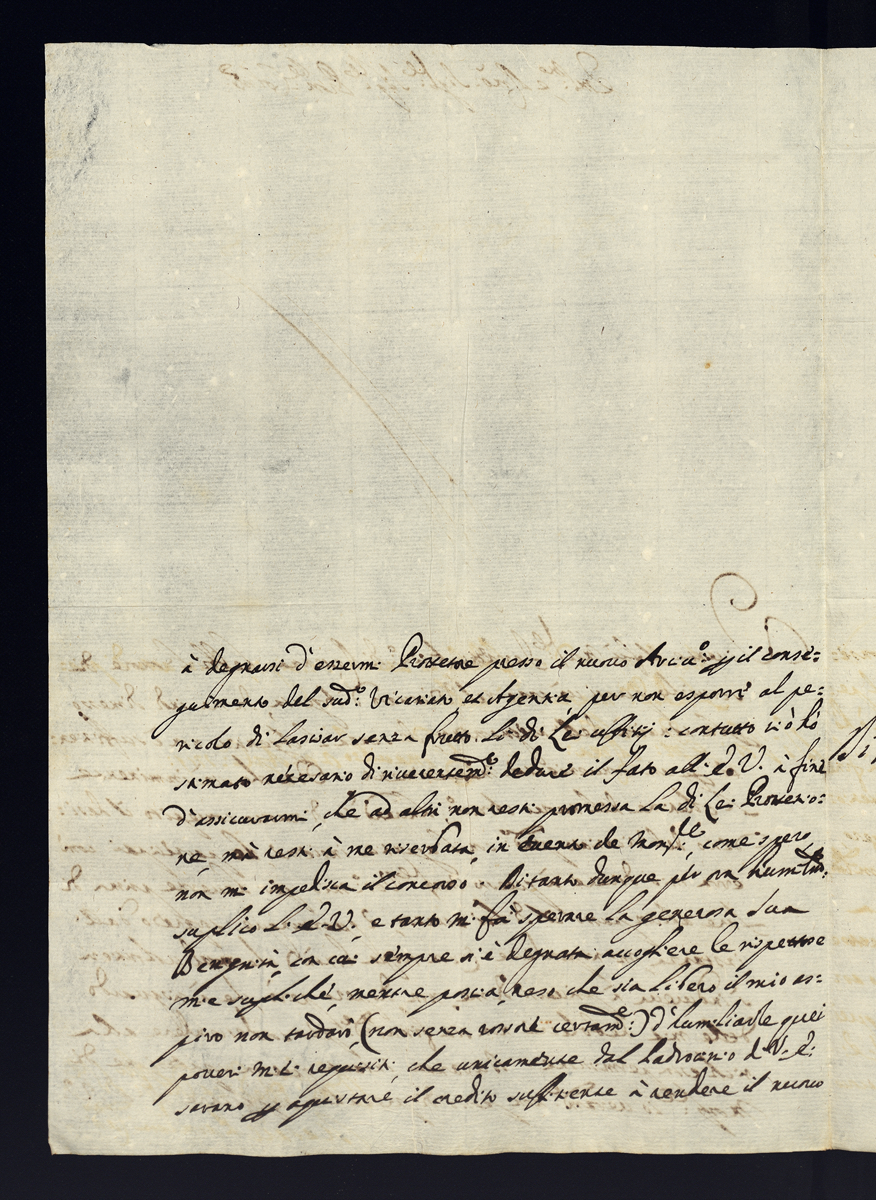 à degnarsi d'essermi Protettre presso il nuovo Arciu.º p il conse-
guimento del sud.º Vicariato et Agentia per non esporre al pe-
ricolo di lasciar senza frutto li di Lei uffitij: contutto ciò hò
stimato necesario di riverentem.e dedure il fato all'E.V. à fine
d'assicurarmi, che ad altri non resti promessa La di Lei Protetio-
ne, mà resti à me riserbata, in evento che Mons.re, come spero,
non m'impedisca il concorso. Di tanto dunque per hum.te
suplico L'E.V., e tanto mi fà sperare la generosa Sua
Benignità, con cui sempre si è degnata accogliere le rispettose
mie supliche, mentre poscia, reso che sia libero il mio as-
piro non tardarò (non senza rossore certam.e) d'humiliarle quei
poveri miei requisiti, che unicamente dal Padrocinio d V.E.
sarano p aquistare il credito sufficiente à rendere il nuovo